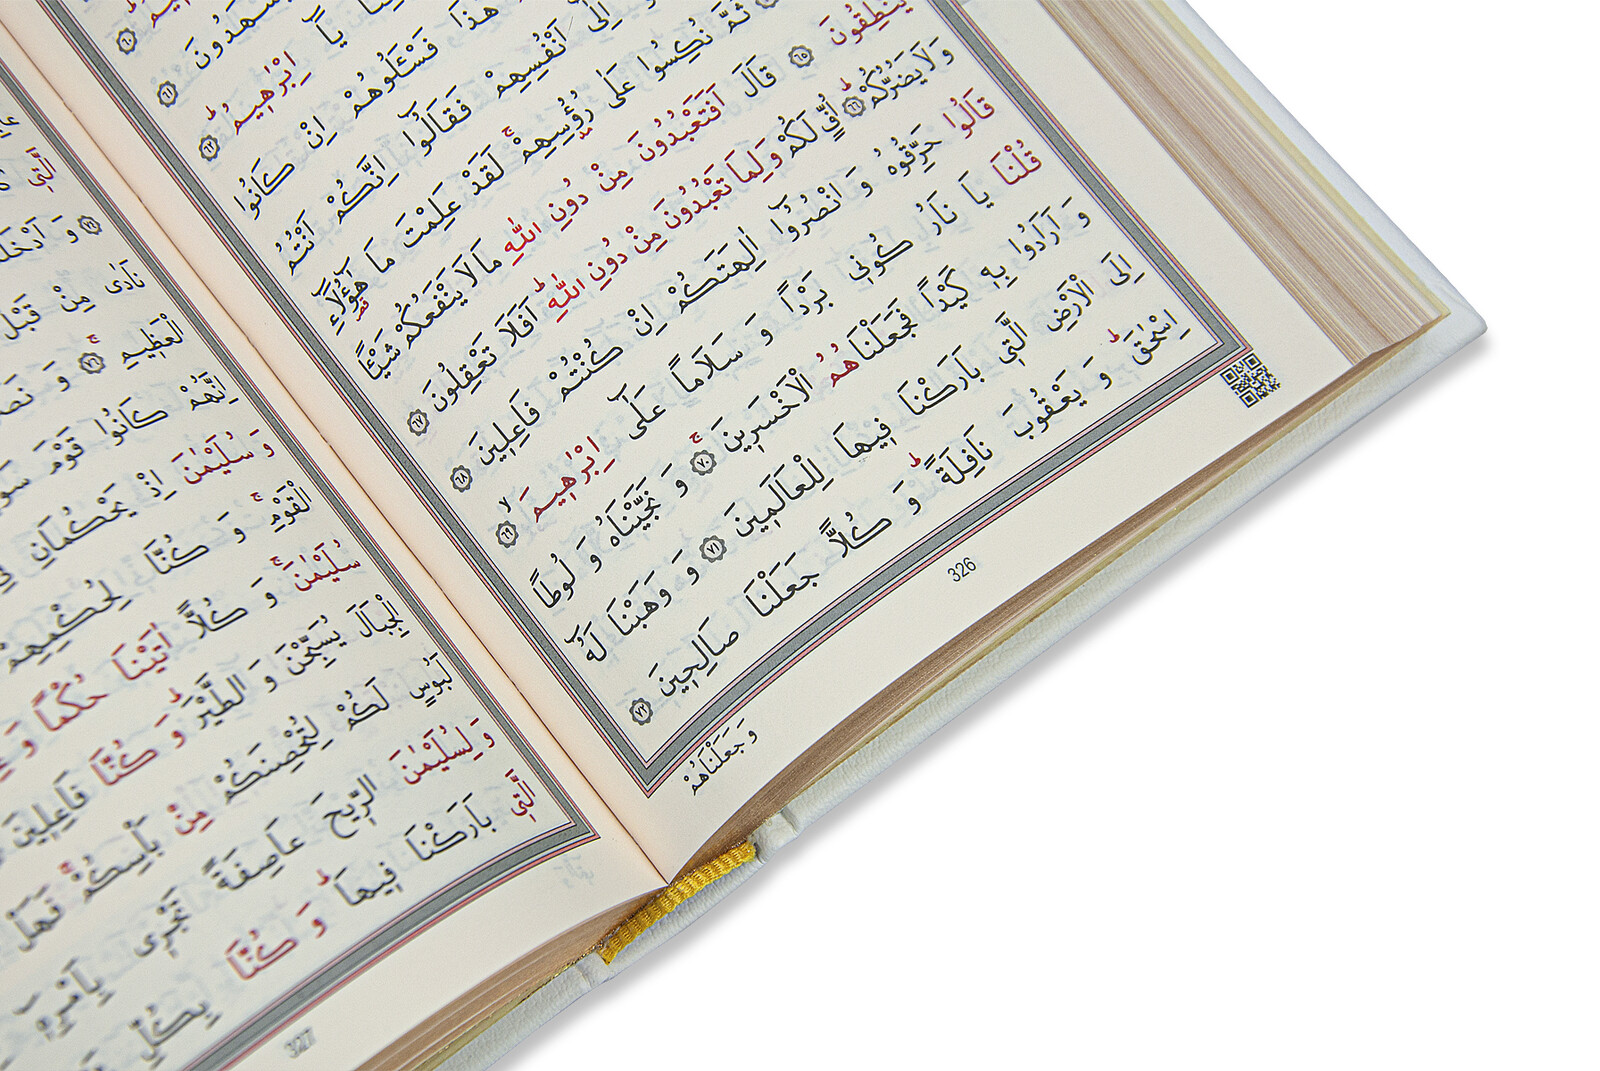 ٦٠
يَشْهَدُونَ ٦١
هٰذَا يَٓا اِبْرٰه۪يمُۜ ٦٢
فَسْـَٔلُوهُمْ اِنْ كَانُوا
اِلٰٓى اَنْفُسِهِمْ فَقَالُٓوا اِنَّكُمْ اَنْتُمُ
ثُمَّ نُكِسُوا عَلٰى رُؤُ۫سِهِمْۚ لَقَدْ عَلِمْتَ مَا هٰٓؤُ۬لَٓاءِ
يَنْطِقُونَ ٦٥ قَالَ اَفَتَعْبُدُونَ مِنْ دُونِ اللّٰهِ مَا لَا يَنْفَعُكُمْ شَيْـًٔا
وَلَا يَضُرُّكُمْۜ ٦٦ اُفٍّ لَكُمْ وَلِمَا تَعْبُدُونَ مِنْ دُونِ اللّٰهِۜ اَفَلَا تَعْقِلُونَ ٦٧
قَالُوا حَرِّقُوهُ وَانْصُرُٓوا اٰلِهَتَكُمْ اِنْ كُنْتُمْ فَاعِل۪ينَ ٦٨
قُلْنَا يَا نَارُ كُون۪ي بَرْدًا وَسَلَامًا عَلٰٓى اِبْرٰه۪يمَۙ ٦٩
وَاَرَادُوا بِه۪ كَيْدًا فَجَعَلْنَاهُمُ الْاَخْسَر۪ينَۚ ٧٠ وَنَجَّيْنَاهُ وَلُوطًا
اِلَى الْاَرْضِ الَّت۪ي بَارَكْنَا ف۪يهَا لِلْعَالَم۪ينَ ٧١ وَوَهَبْنَا لَهُٓ
اِسْحٰقَۜ وَيَعْقُوبَ نَافِلَةًۜ وَكُلًّا جَعَلْنَا صَالِح۪ينَ ٧٢
وَجَعَلْنَاهُمْ
326
الَّت۪ي
وَاَدْخَلْ
نَادٰى مِنْ قَبْلُ
الْعَظ۪يمِۚ ٧٦ وَنَصَ
اِنَّهُمْ كَانُوا قَوْمَ سَوْ
وَسُلَيْمٰنَ اِذْ يَحْكُمَانِ فِي
الْقَوْمِۚ وَكُنَّا لِحُكْمِهِمْ
سُلَيْمٰنَۚ وَكُلًّا اٰتَيْنَا حُكْمًا
الْجِبَالَ يُسَبِّحْنَ وَالطَّيْرَۜ وَكُنَّا فَاعِل۪ينَ
لَبُوسٍ لَكُمْ لِتُحْصِنَكُمْ مِنْ بَأْسِكُمْۚ فَهَلْ
وَلِسُلَيْمٰنَ الرّ۪يحَ عَاصِفَةً تَجْر۪ي بِاَمْرِه۪ٓ
الَّت۪ي بَارَكْنَا ف۪يهَاۜ وَكُنَّا بِكُلِّ
327